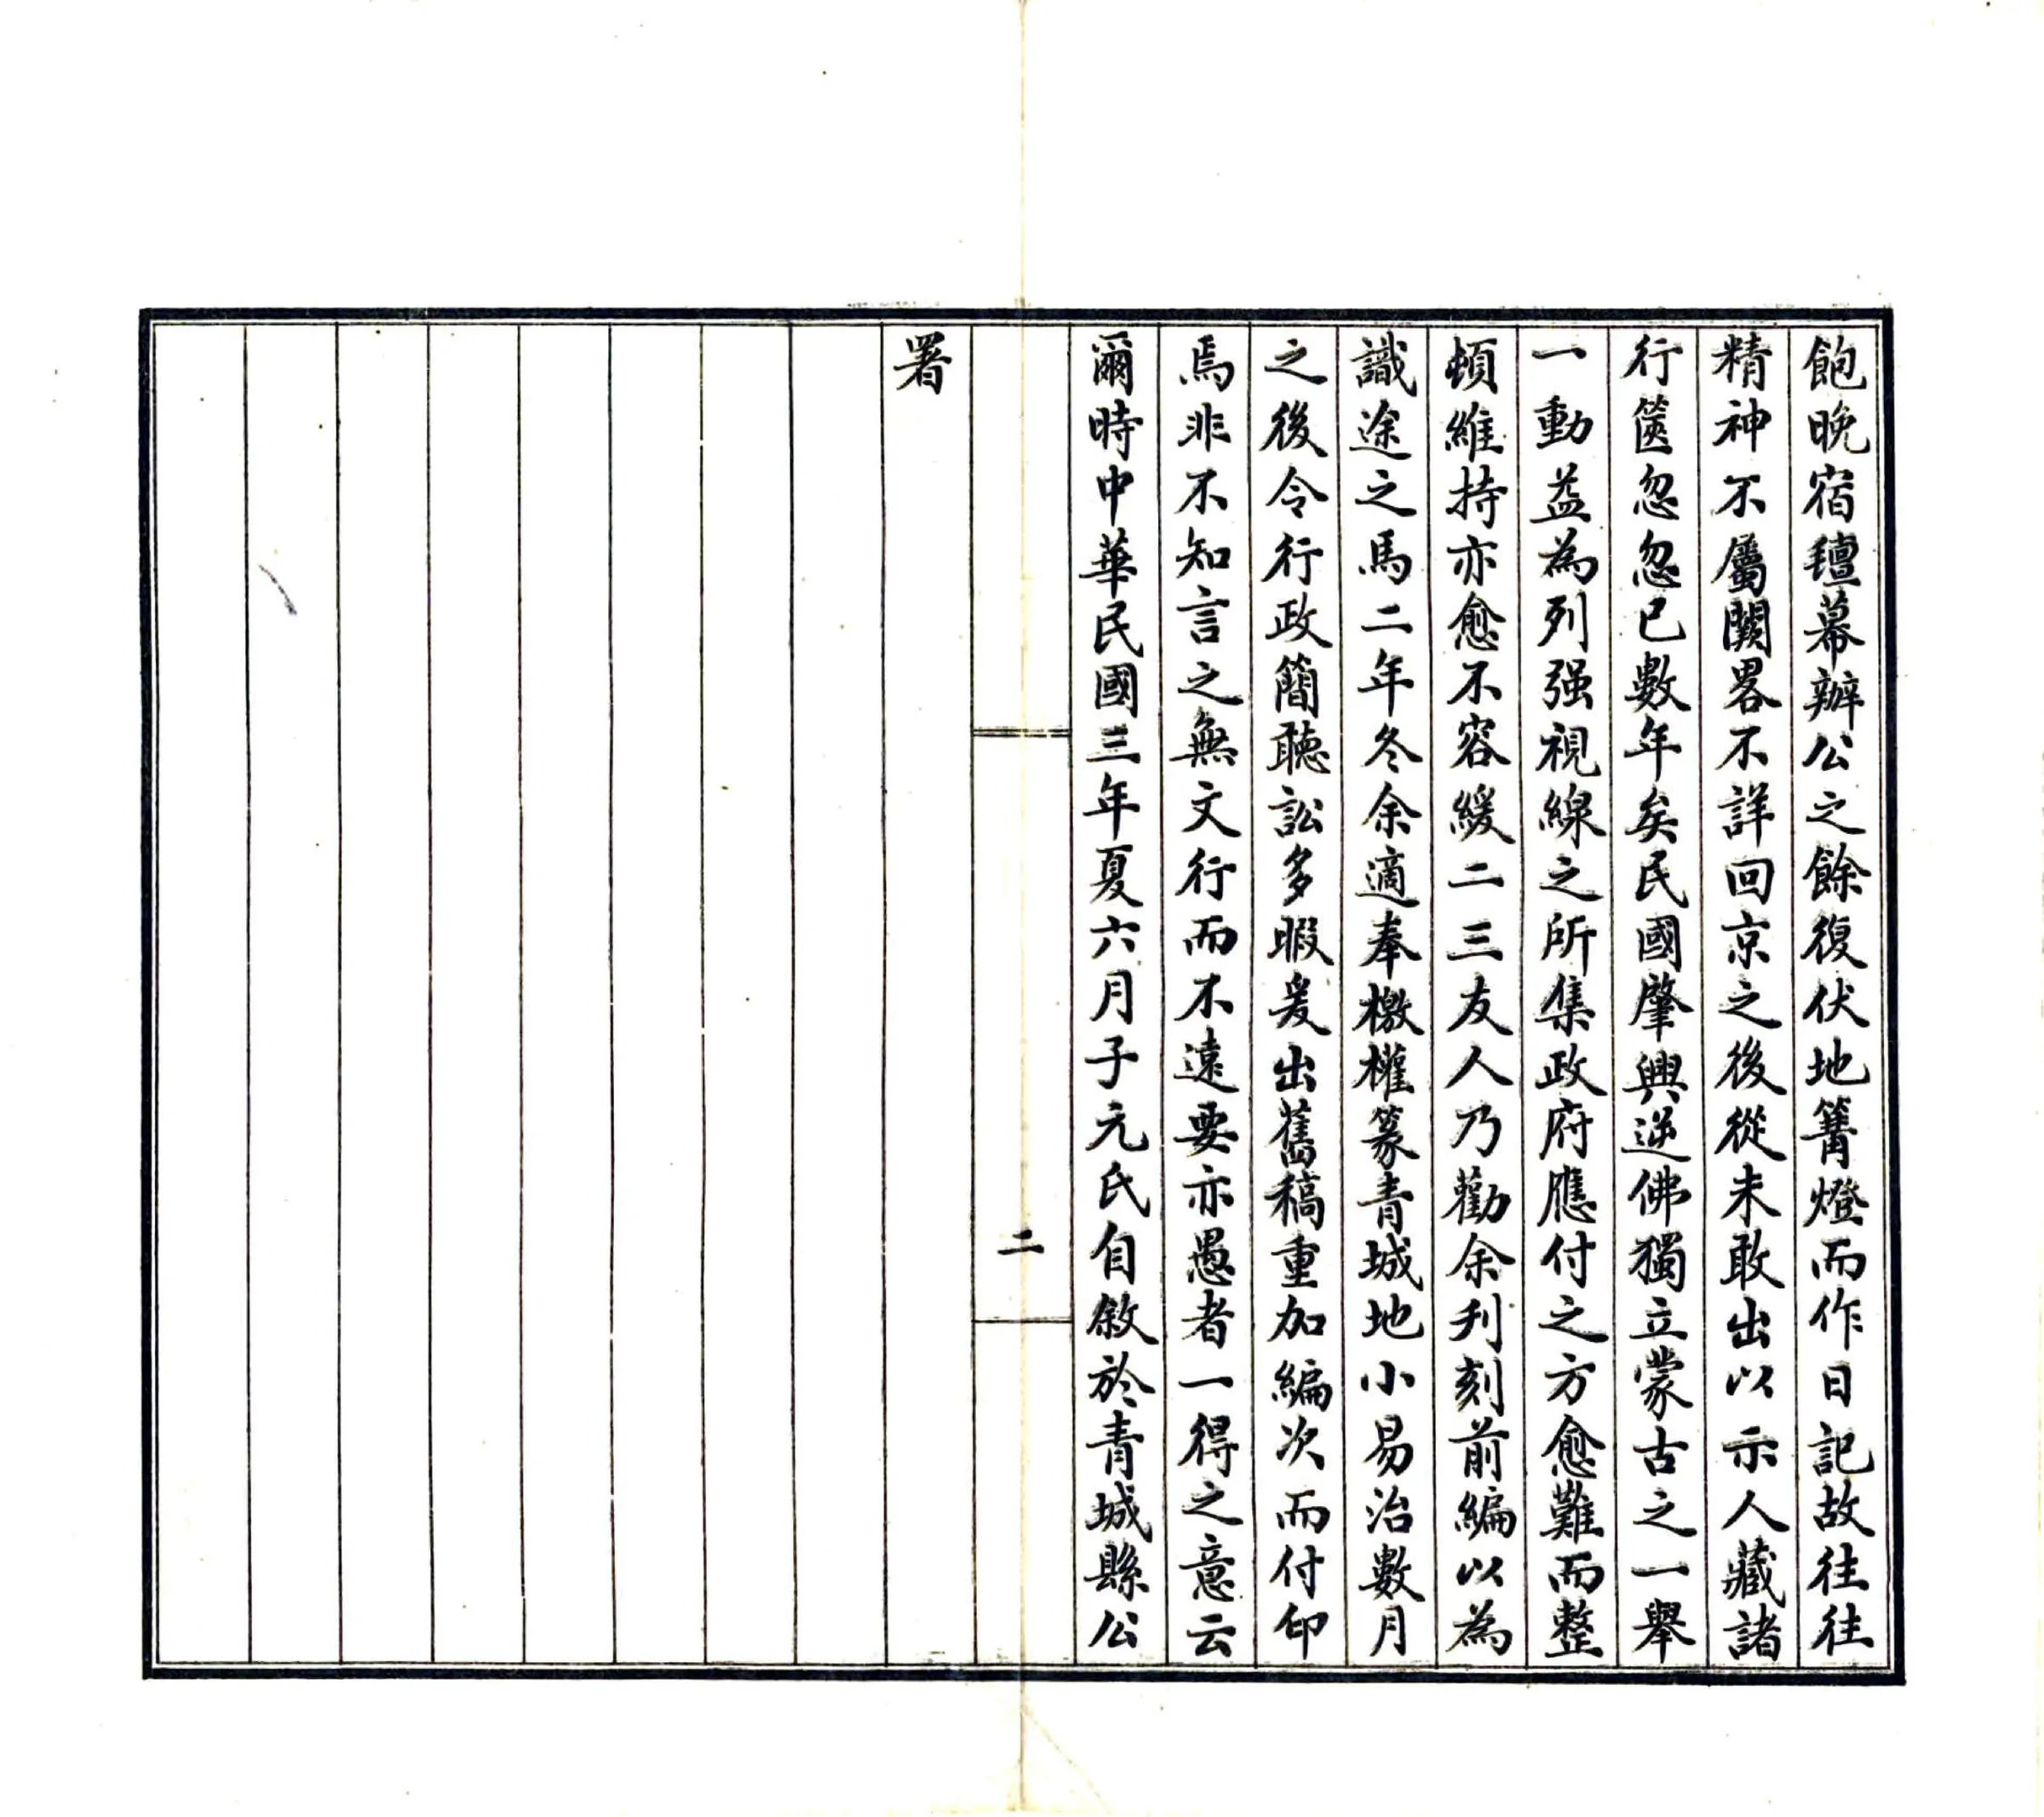 飽晚宿氊幕辦公之餘復伏地篝燈而作日記故往往
精神不屬闕畧不詳回京之後從未敢出以示人藏諸
行篋忽忽已數年矣民國肇興逆佛獨立蒙古之一舉
一動益為列强視線之所集政府應付之方愈難而整
頓維持亦愈不容緩二三友人乃勸余刋刻前編以為
識途之馬二年冬余適奉檄權篆青城地小易治數月
之後令行政簡聽訟多暇爰出舊稿重加編次而付印
焉非不知言之無文行而不遠要亦愚者一得之意云
爾時中華民國三年夏六月子元氏自敘於青城縣公
二
署